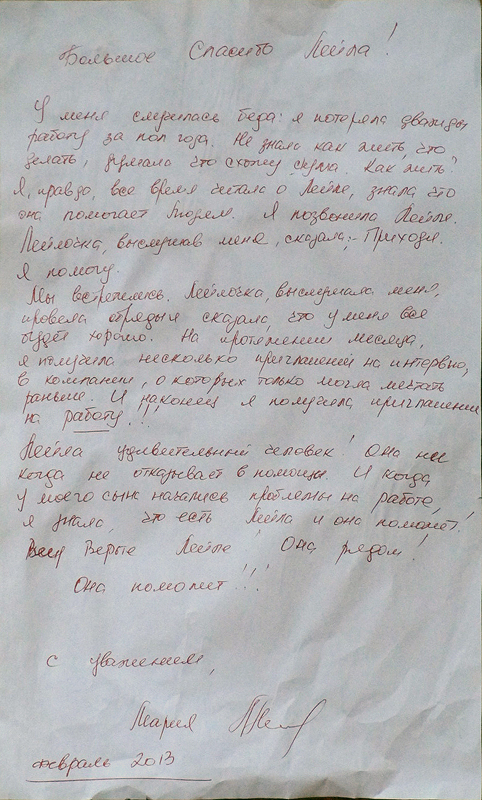 Большое Спасибо Лейла!
У меня случилась беда: я потеряла дважды
работу за пол года. Не знала как жить, что
делать, думала что схожу с ума. Как жить?
Я, правда, все время читала о Лейле, знала, что
она помогает людям. Я позвонила Лейле.
Лейлочка, выслушав меня, сказала:- Приходи.
Я помогу.
Мы встретились. Лейлочка, выслушала меня,
провела обряды и сказала, что у меня все
будет хорошо. На протяжении месяца,
я получила несколько приглашений на интервью,
в компании, о которых только могла мечтать
раньше. И наконец я получила приглашение
на работу!!!
Лейла удивительный человек! Она ни
когда не отказывает в помощи. И когда
у моего сына начались проблемы на работе,
я знала, что есть Лейла и она поможет!
Верьте Лейле! Она рядом!
Она поможет!!!
С уважением,
Мария
февраль 2013